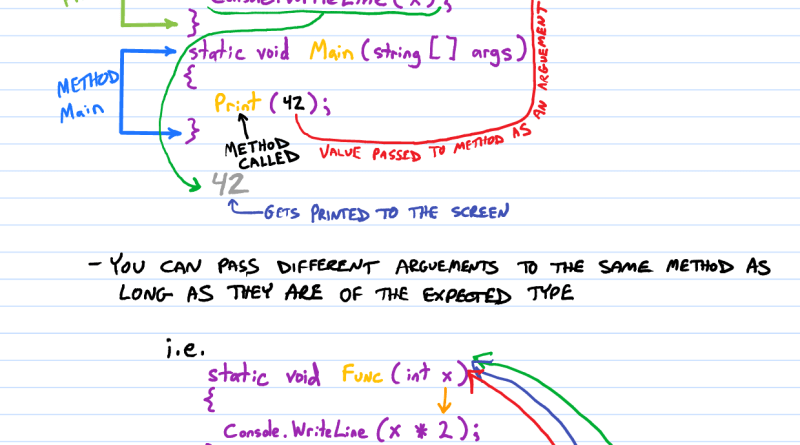 (x);
}
static void Main (string [] args)
{
METHOD
Main
Print (42);
}
METHOD
CALLED
VALUE PASSED TO METHOD AS
AN ARGUEMENT
42
GETS PRINTED TO THE SCREEN
- YOU CAN PASS DIFFERENT ARGUEMENTS TO THE SAME METHOD AS
LONG AS THEY ARE OF THE EXPECTED TYPE
i.e.
static void Func (int x)
{
Console.WriteLine (x * 2);